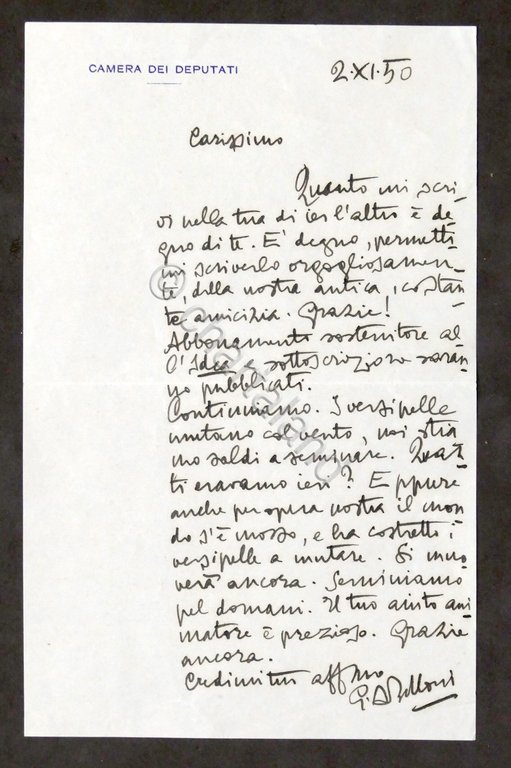 CAMERA DEI DEPUTATI
2.XI.50
Carissimo
Quanto mi scri-
vi nella tua di ier l'altro è de
gno di te. E' degno, permetti
mi scriverlo orgogliosamen-
te, della nostra antica, costan-
te amicizia. Grazie!
Abbonamento sostenitore al
l'Idea e sottoscrizione saran-
no pubblicati.
Continuiamo. I versipelle
mutano col vento, noi stia
mo saldi a seminare. Quan-
ti eravamo ieri? E ppure
anche per opera nostra il mon
do s'è mosso, e ha costretto i
versipelle a mutare. Si muo
verà ancora. Seminiamo
pel domani. Il tuo aiuto ani
matore è prezioso. Grazie
ancora.
Credimi tuo affmo
G. A. Belloni
© chartaland